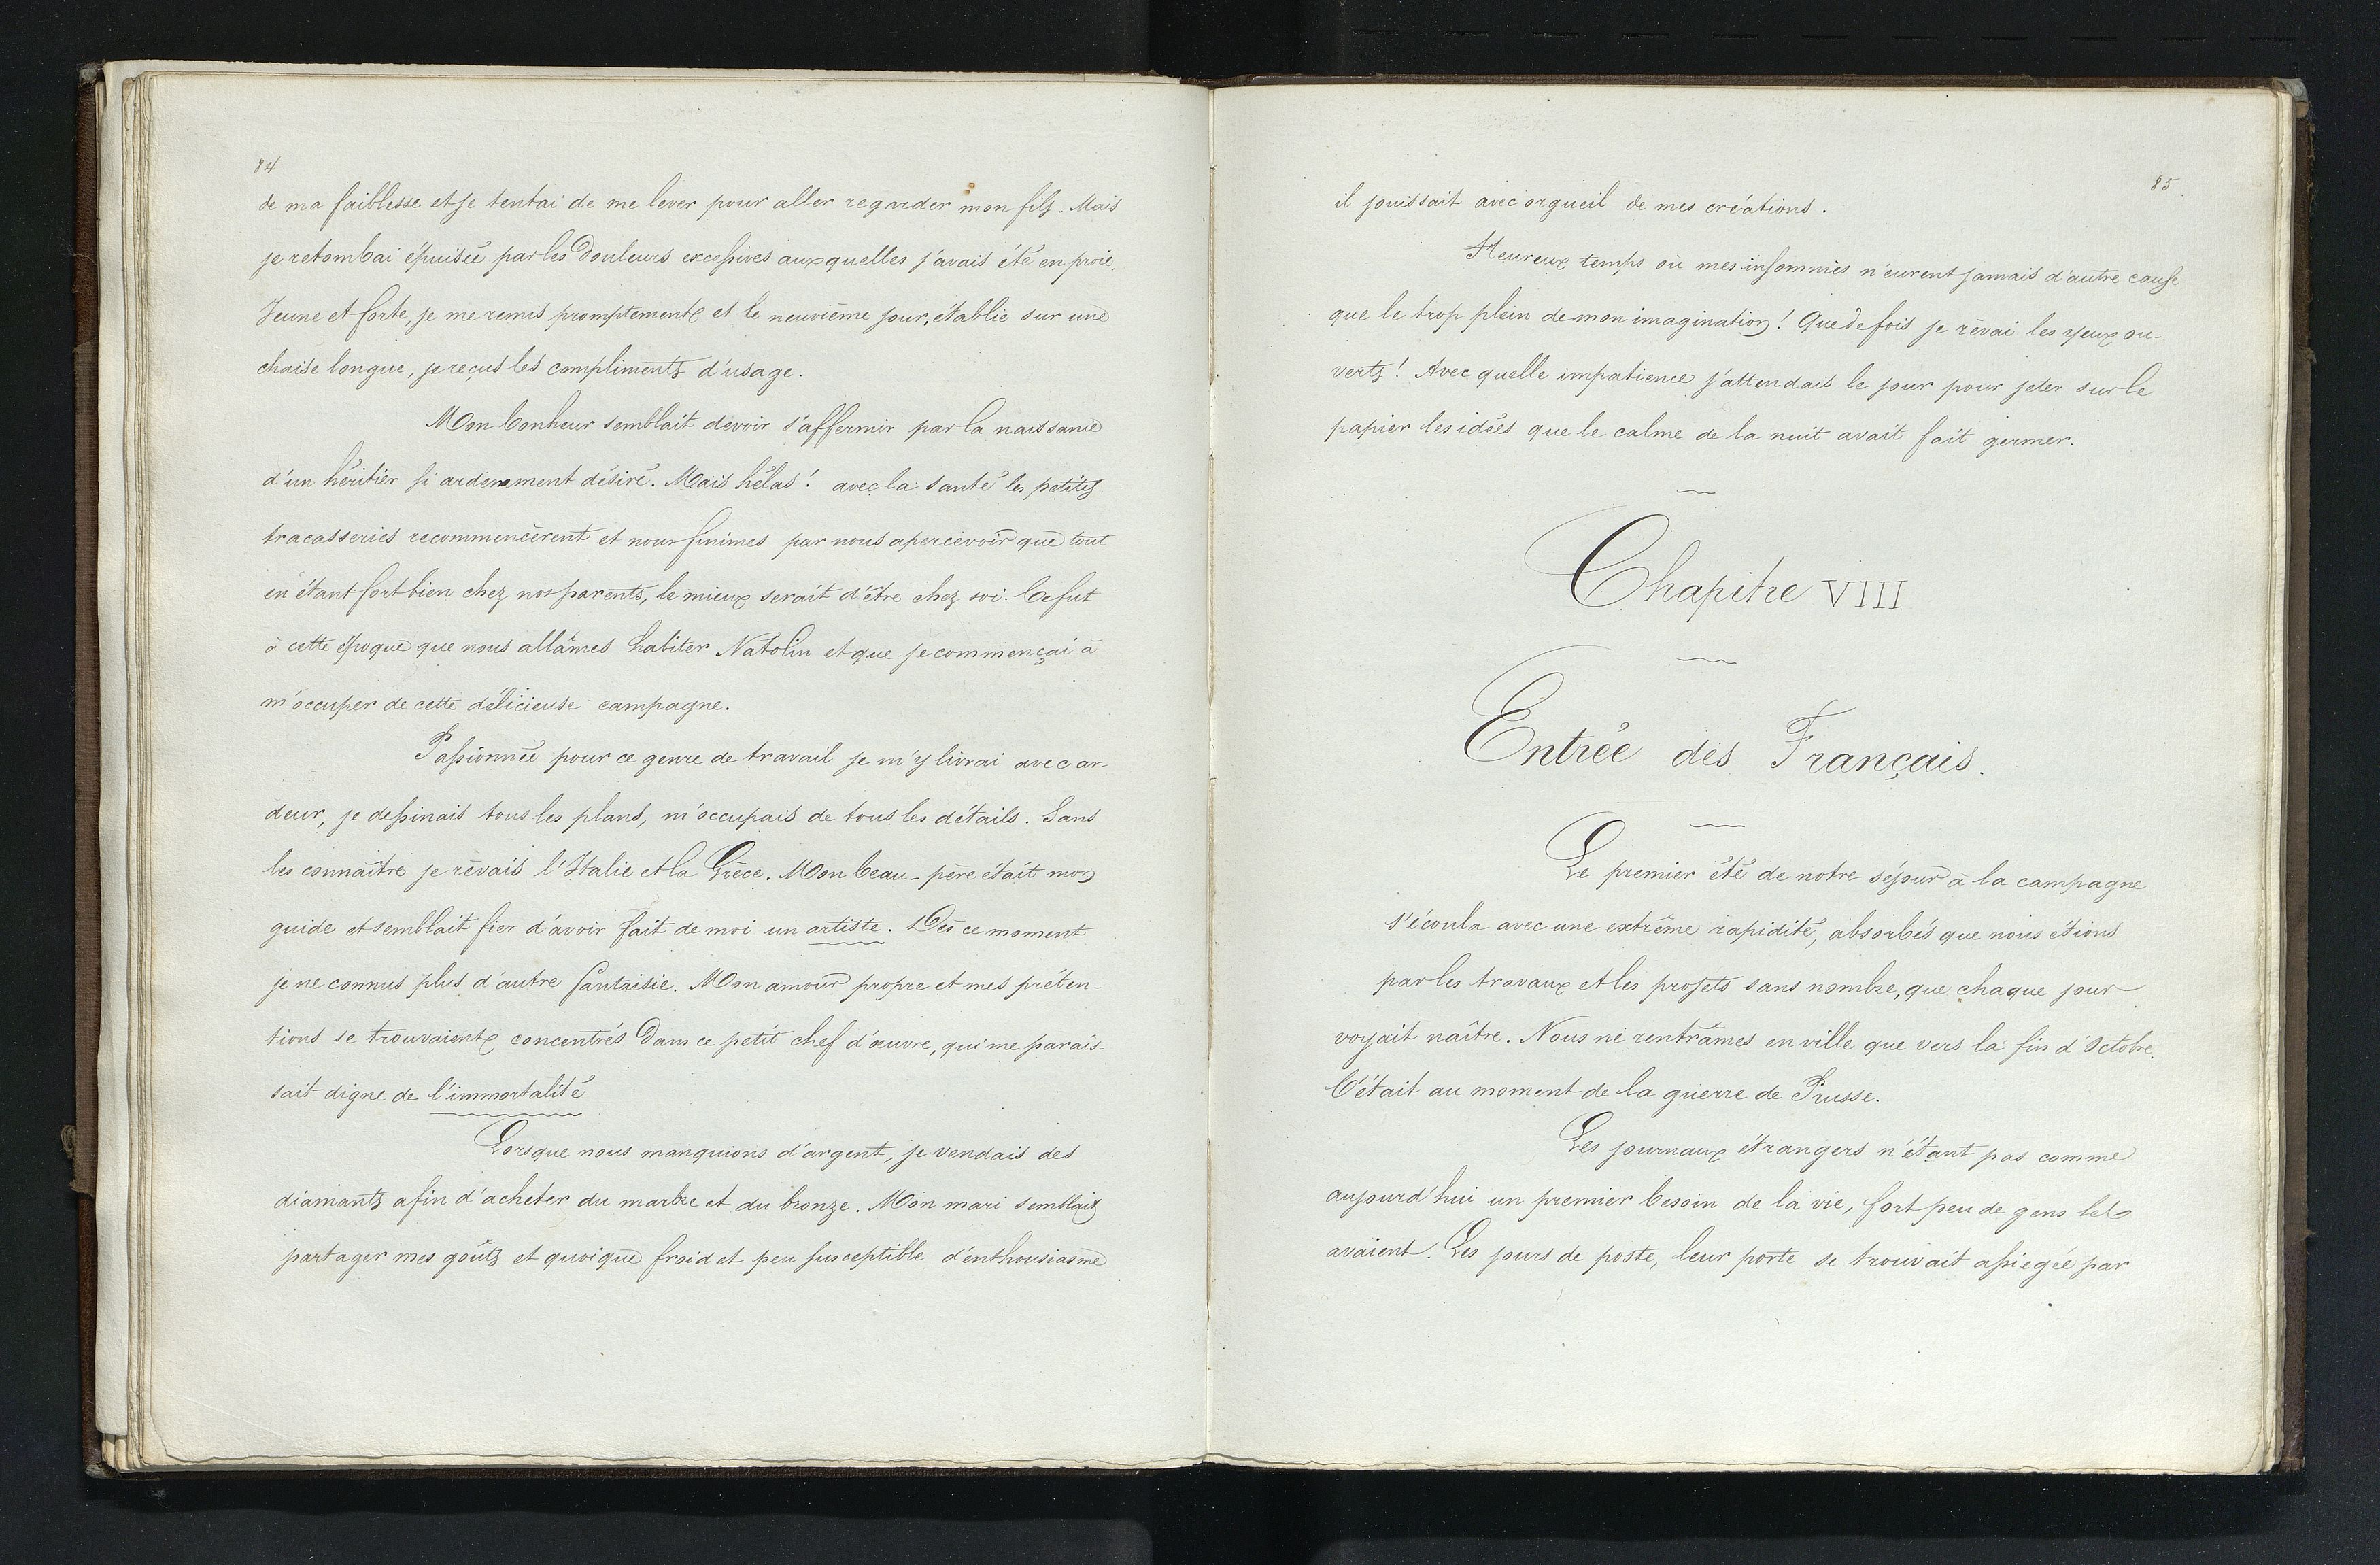 84
de ma faiblesse et je tentai de me lever pour aller regarder mon fils. Mais
je retombai épuisée par les douleurs excessives auxquelles j'avais été en proie.
Jeune et forte, je me remis promptement et le neuvième jour, établie sur une
chaise longue, je reçus les compliments d'usage.
Mon bonheur semblait devoir s'affermir par la naissance
d'un héritier si ardemment désiré. Mais hélas! avec la santé les petites
tracasseries recommencèrent et nous finimes par nous apercevoir que tout
en étant fort bien chez nos parents, le mieux serait d'être chez soi. Ce fut
à cette époque que nous allâmes habiter Natolin et que je commençai à
m'occuper de cette délicieuse campagne.
Passionnée pour ce genre de travail je m'y livrai avec ar-
deur, je dessinais tous les plans, m'occupais de tous les détails. Sans
les connaître je rêvais l'Italie et la Grèce. Mon beau-père était mon
guide et semblait fier d'avoir fait de moi un artiste. Dès ce moment
je ne connus plus d'autre fantaisie. Mon amour propre et mes préten-
tions se trouvaient concentrés dans ce petit chef d'œuvre, qui me parais-
sait digne de l'immortalité
Lorsque nous manquions d'argent, je vendais des
diamants afin d'acheter du marbre et du bronze. Mon mari semblait
partager mes goûts et quoique froid et peu susceptible d'enthousiasme
85
il jouissait avec orgueil de mes créations.
Heureux temps où mes insomnies n'eurent jamais d'autre cause
que le trop plein de mon imagination! Que de fois je rêvai les yeux ou-
verts! Avec quelle impatience j'attendais le jour pour jeter sur le
papier les idées que le calme de la nuit avait fait germer.
Chapitre VIII
Entrée des Français.
Le premier été de notre séjour à la campagne
s'écoula avec une extrême rapidité, absorbés que nous étions
par les travaux et les projets sans nombre, que chaque jour
voyait naître. Nous ne rentrâmes en ville que vers la fin d'Octobre.
C'était au moment de la guerre de Prusse.
Les journaux étrangers n'étant pas comme
aujourd'hui un premier besoin de la vie, fort peu de gens les
avaient. Les jours de poste, leur porte se trouvait assiégée par